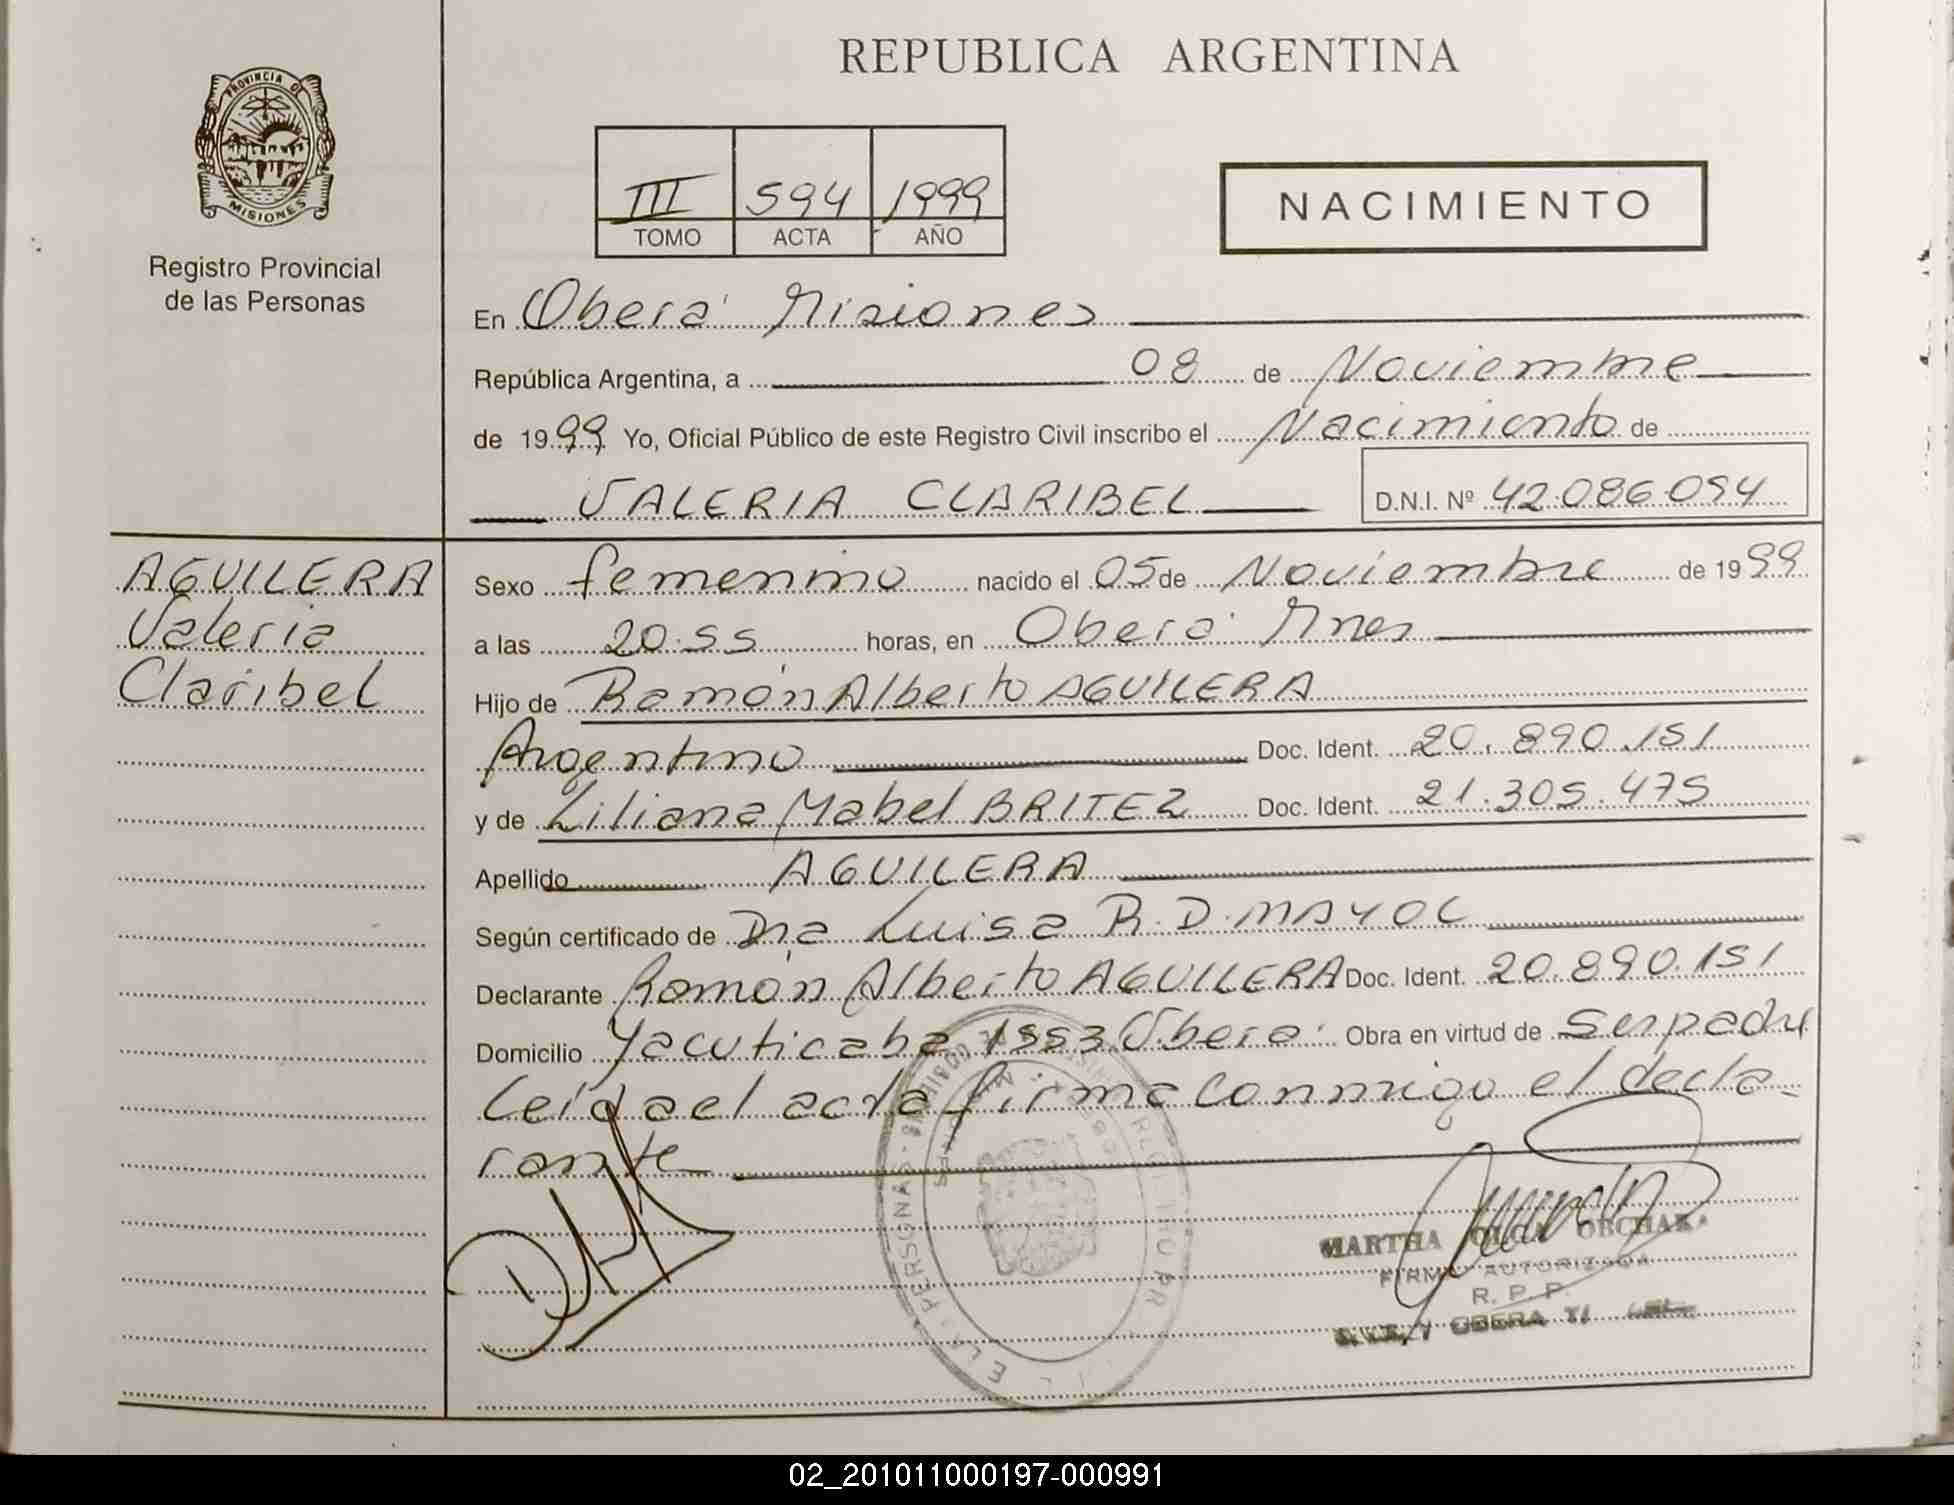 REPUBLICA ARGENTINA
PROVINCIA DE
MISIONES
Registro Provincial
de las Personas
III 594 1999
TOMO ACTA AÑO
NACIMIENTO
En Oberá Misiones
República Argentina, a 08 de Noviembre
de 1999 Yo, Oficial Público de este Registro Civil inscribo el Nacimiento de
VALERIA CLARIBEL D.N.I. Nº 42.086.094
AGUILERA
Valeria
Claribel
Sexo femenino nacido el 05 de Noviembre de 1999
a las 20.55 horas, en Oberá Mnes
Hijo de Ramón Alberto AGUILERA
Argentino Doc. Ident. 20.890.151
y de Liliana Mabel BRITEZ Doc. Ident. 21.305.475
Apellido AGUILERA
Según certificado de Dra Luisa R.D. MAYOL
Declarante Ramón Alberto AGUILERA Doc. Ident. 20.890.151
Domicilio Yacuticaba 1553 Oberá Obra en virtud de Ser padre
Leída el acta firma conmigo el decla-
rante
MARTHA OLGA OBCHAR
FIRMA AUTORIZADA
R. P. P.
OBERA
02_201011000197-000991